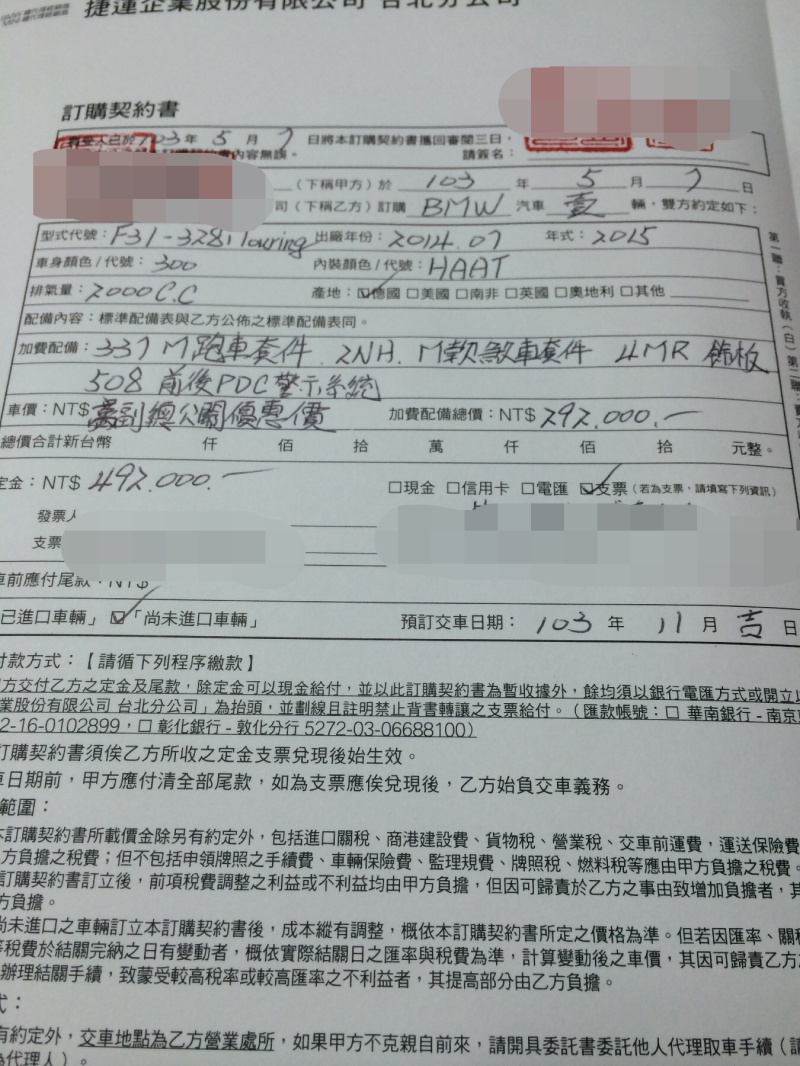 捷運企業股份有限公司 台北分公司
訂購契約書
103年5月7日將本訂購契約書攜回審閱三日，
訂購契約書內容無誤。 請簽名：
（下稱甲方）於 103 年 5 月 7 日
司（下稱乙方）訂購 BMW 汽車 壹 輛，雙方約定如下：
型式代號：F31-328i Touring 出廠年份：2014.07 年式：2015
車身顏色/代號：300 內裝顏色/代號：HAAT
排氣量：2000C.C 產地：☑德國□美國□南非□英國□奧地利□其他
配備內容：標準配備表與乙方公佈之標準配備表同。
加費配備：337 M跑車套件．2NH．M款煞車套件 4MR 飾板
508 前後PDC警示系統
車價：NT$萬副總公關優惠價 加費配備總價：NT$292,000.-
總價合計新台幣 仟 佰 拾 萬 仟 佰 拾 元整。
定金：NT$ 492,000.- □現金 □信用卡 □電匯 ☑支票（若為支票，請填寫下列資訊）
發票人
支票
車前應付尾款：NT$
已進口車輛」☑「尚未進口車輛」 預訂交車日期：103 年 11 月 吉 日
付款方式：【請循下列程序繳款】
方交付乙方之定金及尾款，除定金可以現金給付，並以此訂購契約書為暫收據外，餘均須以銀行電匯方式或開立以
業股份有限公司 台北分公司」為抬頭，並劃線且註明禁止背書轉讓之支票給付。（匯款帳號：□ 華南銀行 - 南京
2-16-0102899，□ 彰化銀行 - 敦化分行 5272-03-06688100）
訂購契約書須俟乙方所收之定金支票兌現後始生效。
車日期前，甲方應付清全部尾款，如為支票應俟兌現後，乙方始負交車義務。
範圍：
本訂購契約書所載價金除另有約定外，包括進口關稅、商港建設費、貨物稅、營業稅、交車前運費，運送保險費
方負擔之稅費；但不包括申領牌照之手續費、車輛保險費、監理規費、牌照稅、燃料稅等應由甲方負擔之稅費。
訂購契約書訂立後，前項稅費調整之利益或不利益均由甲方負擔，但因可歸責於乙方之事由致增加負擔者，其
方負擔。
尚未進口之車輛訂立本訂購契約書後，成本縱有調整，概依本訂購契約書所定之價格為準。但若因匯率、關稅
等稅費於結關完納之日有變動者，概依實際結關日之匯率與稅費為準，計算變動後之車價，其因可歸責乙方之
辦理結關手續，致蒙受較高稅率或較高匯率之不利益者，其提高部分由乙方負擔。
式：
有約定外，交車地點為乙方營業處所，如果甲方不克親自前來，請開具委託書委託他人代理取車手續（請
為代理人）。
第一聯：賣方收執(白) 第二聯：買方